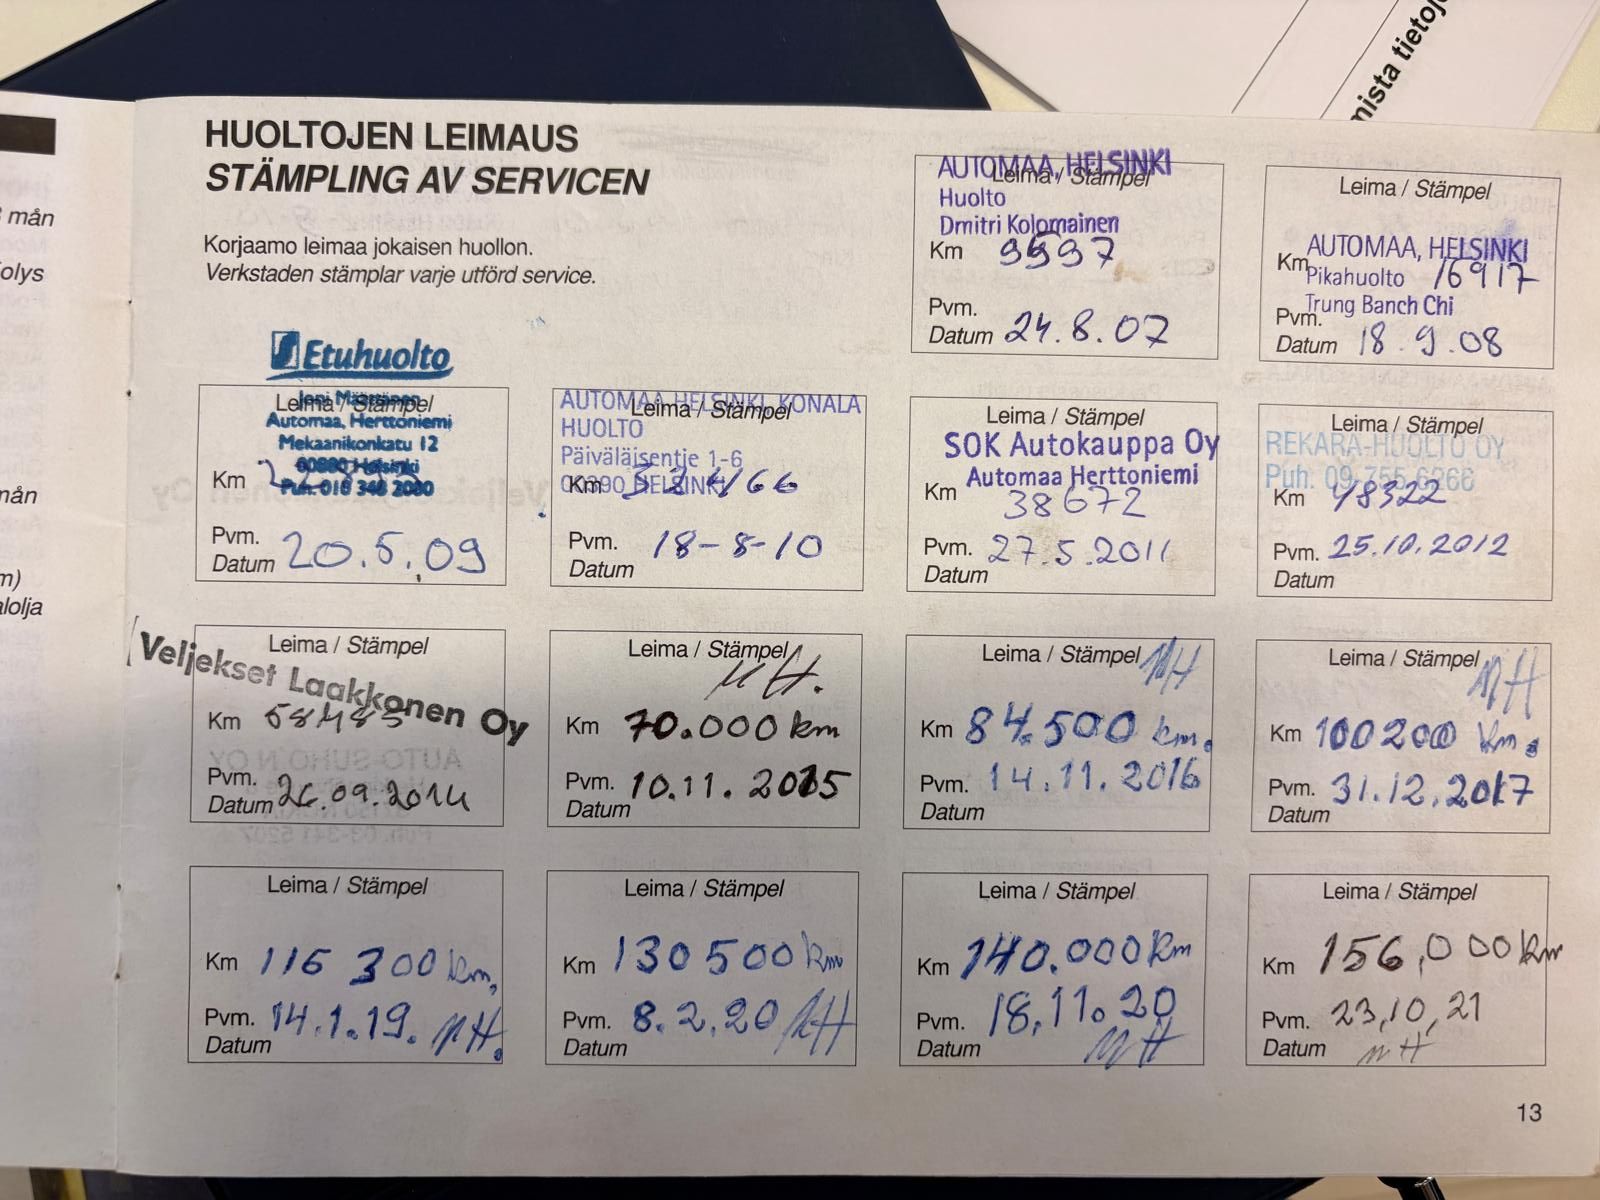 mista tietoj
mån
olys
mån
m)
alolja
HUOLTOJEN LEIMAUS
STÄMPLING AV SERVICEN
Korjaamo leimaa jokaisen huollon.
Verkstaden stämplar varje utförd service.
AUTOMAA, HELSINKI
Leima / Stämpel
Huolto
Dmitri Kolomainen
Km 9597
Pvm.
Datum 24.8.07
Leima / Stämpel
AUTOMAA, HELSINKI
Km 16917
Pikahuolto
Trung Banch Chi
Pvm.
Datum 18.9.08
Etuhuolto
Leima / Stämpel
Automaa, Herttoniemi
Mekaanikonkatu 12
00880 Helsinki
Km
Puh. 010 348 2000
Pvm.
Datum 20.5.09
AUTOMAA HELSINKI, KONALA
Leima / Stämpel
HUOLTO
Päiväläisentie 1-6
HELSINKI
Km
Pvm. 18-8-10
Datum
Leima / Stämpel
SOK Autokauppa Oy
Automaa Herttoniemi
Km 38672
Pvm. 27.5.2011
Datum
Leima / Stämpel
REKARA-HUOLTO OY
Puh. 09-755 6266
Km 48322
Pvm. 25.10.2012
Datum
Leima / Stämpel
Veljekset Laakkonen Oy
Km
Pvm.
Datum 26.09.2014
Leima / Stämpel
MH.
Km 70.000 km
Pvm. 10.11.2015
Datum
Leima / Stämpel
MH
Km 84.500 km.
Pvm. 14.11.2016
Datum
Leima / Stämpel
MH
Km 100200 km.
Pvm. 31.12.2017
Datum
Leima / Stämpel
Km 116 300 km,
Pvm. 14.1.19. MH.
Datum
Leima / Stämpel
Km 130500 km
Pvm. 8.2.20 MH
Datum
Leima / Stämpel
Km 140.000 km
Pvm. 18,11.20
Datum MH
Leima / Stämpel
Km 156,000 km
Pvm. 23,10,21
Datum MH
13